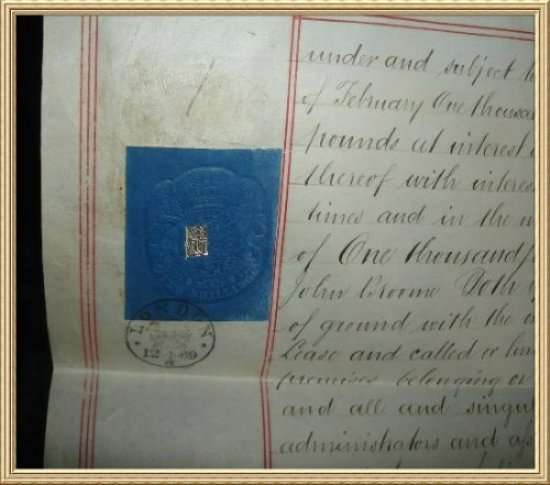 under and subject
of February One thousand
pounds at interest
thereof with interest
times and in the
of One thousand
John Broome Doth
of ground with the
Lease and called or
premises belonging or
and all and
administrators and
LONDON
12·4·69